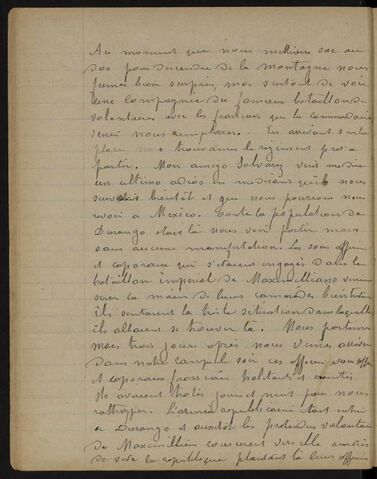 Au moment que nous mettions sac au
dos pour descendre de la montagne nous
fumes bien surpris, moi surtout de voir
une compagnie du fameux bataillon de
volontaires avec les français que les commandaient
venir nous remplacer. En arrivant sur la
place nous trouvâmes le régiment pret a
partir. Mon amigo Salvarez vint me dire
un ultimo adios en me disant qu'il nous
suivrait bientôt et que nous pourrions nous
revoir a México. Toute la population de
Durango etait là nous voir partir mais
sans aucune manifestation. Les sous officiers
et caporaux qui s'etaient engagés dans le
bataillon impérial de Maximilliano vinrent
serrer la main de leurs camarades
ils sentaient la triste situation dans laquelle
ils allaient se trouver là. Nous partimes
mais trois jours après nous vimes arriver
dans notre camp le soir ces officiers sous off
et caporaux français habitués et
Ils avaient trotés jour et nuit pour nous
rattraper. L'armée republicaine etait entrée
a Durango et aussitôt les pretendus volontaires
de Maximilien coururent vers elle
de vive la republique plantant là leurs officiers